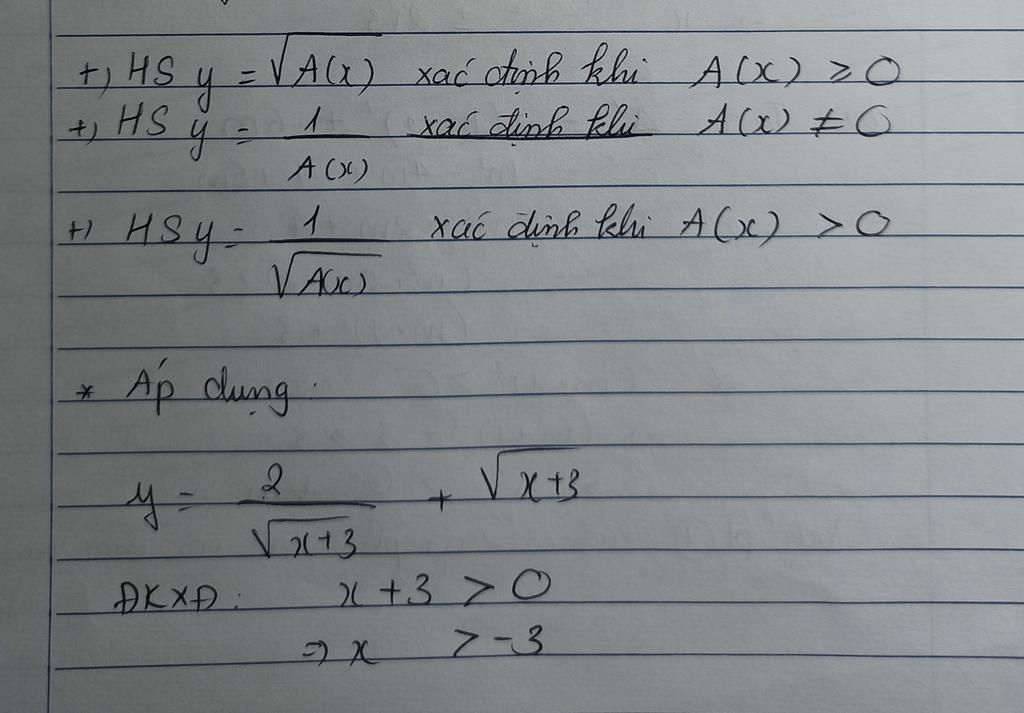 +) HS y = √A(x) xác định khi A(x) ≥ 0
+) HS y = 1/A(x) xác định khi A(x) ≠ 0
+) HS y = 1/√A(x) xác định khi A(x) > 0
* Áp dụng :
y = 2/√(x+3) + √(x+3)
ĐKXĐ: x + 3 > 0
⇒ x > -3